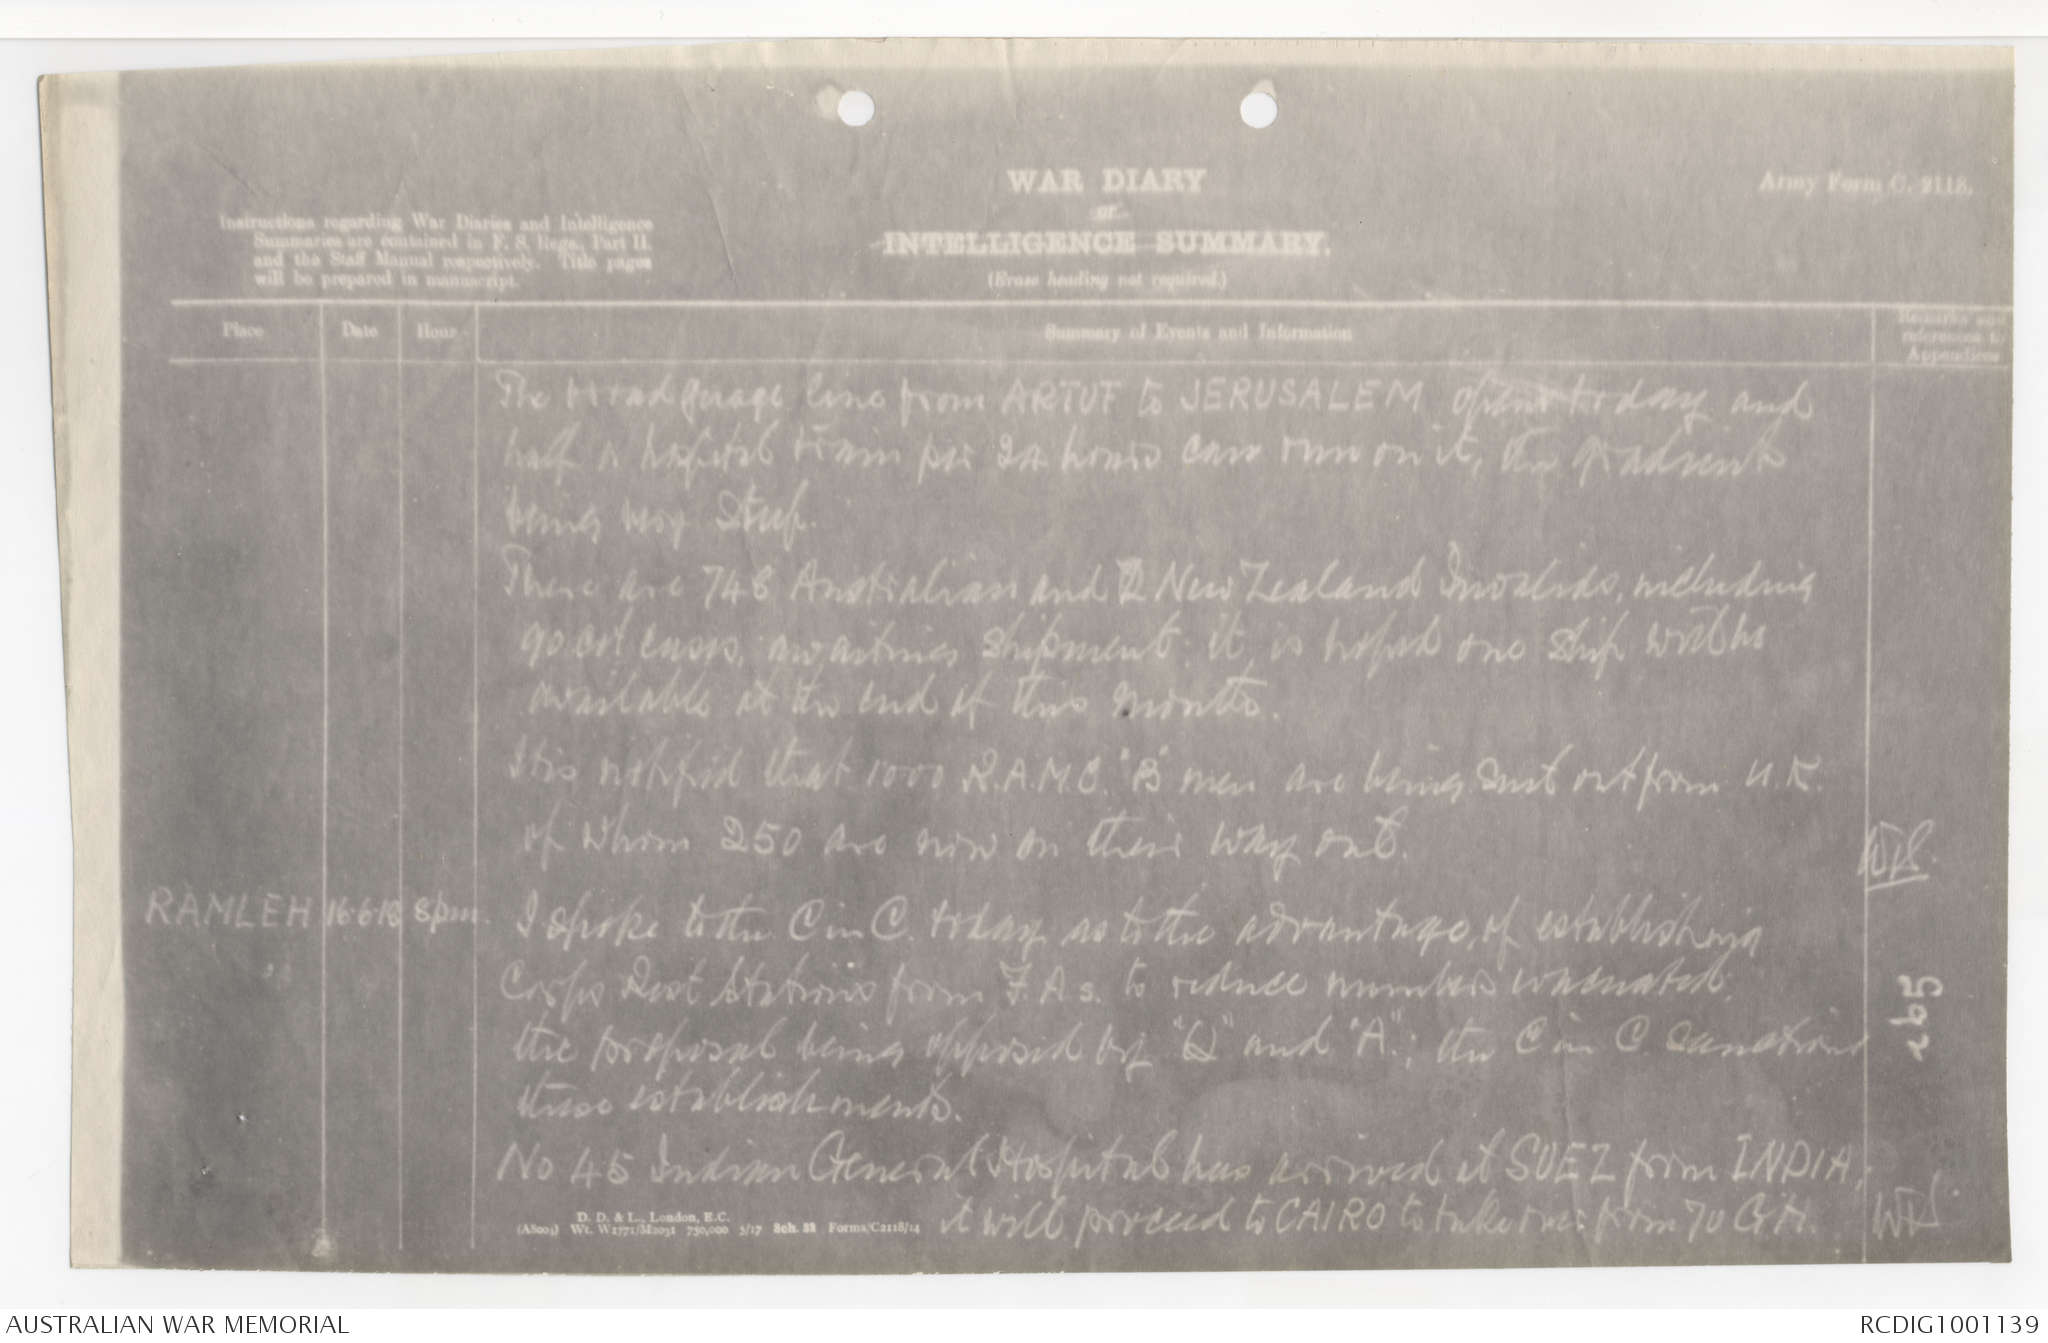 WAR DIARY
or
INTELLIGENCE SUMMARY.
(Erase heading not required.)
Army Form C. 2118.
Instructions regarding War Diaries and Intelligence
Summaries are contained in F. S. Regs., Part II.
and the Staff Manual respectively. Title pages
will be prepared in manuscript.
Place Date Hour Summary of Events and Information Remarks and
references to
Appendices
The broad guage line from ARTUF to JERUSALEM opens today and
half a hospital train per 24 hours can run on it, the gradient
being very steep.
There are 748 Australian and 2 New Zealand Invalids, including
90 cot cases, awaiting shipment. it is hoped one ship will be
available at the end of this month.
It is notified that 1000 R.A.M.C. "B" men are being sent out from U.K.
of whom 250 are now on their way out.
RAMLEH 16.6.18 8pm. I spoke to the C in C. today as to the advantage, of establishing
Corps Rest Stations from F.As. to reduce numbers evacuated,
the proposal being opposed by "Q" and "A"; the C in C. sanctions
these establishments.
No 45 Indian General Hospital has arrived at SUEZ from INDIA,
it will proceed to CAIRO to take over from 70 G.H.
265
D. D. & L., London, E.C.
(A8001) Wt. W1771/M2031 750,000 5/17 Sch. 52 Forms/C2118/14
AUSTRALIAN WAR MEMORIAL
RCDIG1001139